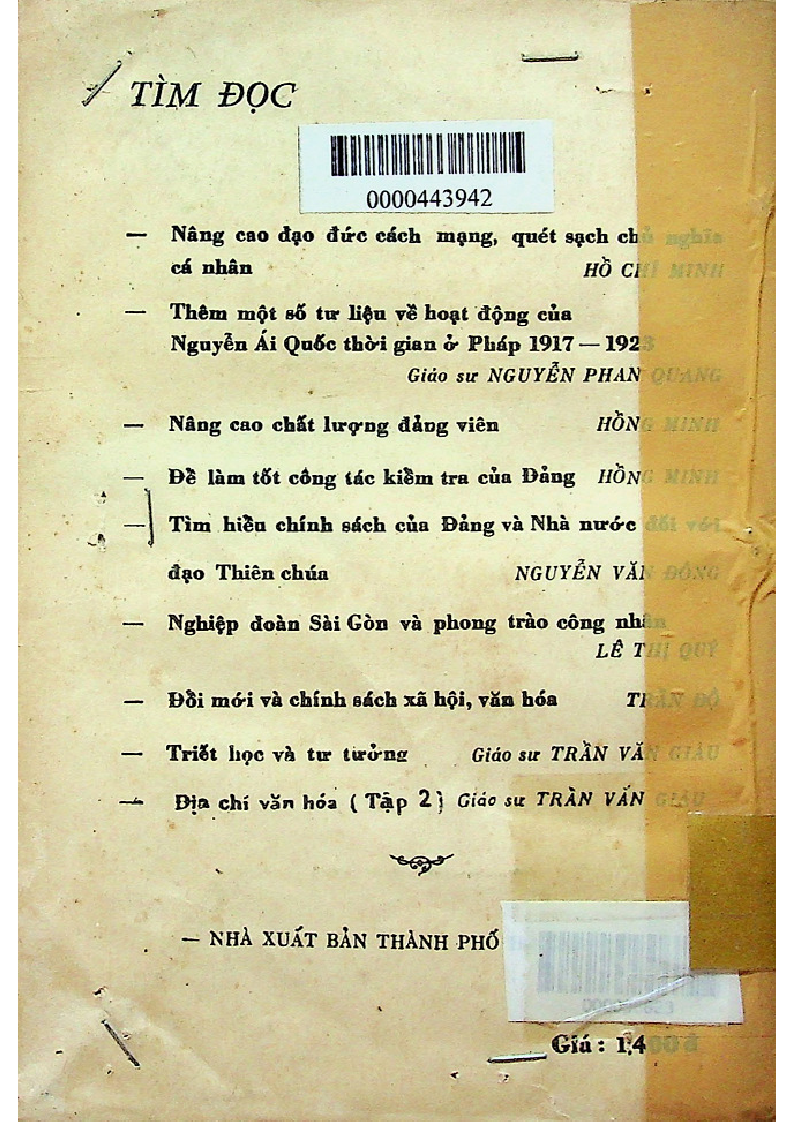 TÌM ĐỌC
0000443942
— Nâng cao đạo đức cách mạng, quét sạch chủ nghĩa
cá nhân HỒ CHÍ MINH
— Thêm một số tư liệu về hoạt động của
Nguyễn Ái Quốc thời gian ở Pháp 1917 — 1923
Giáo sư NGUYỄN PHAN QUANG
— Nâng cao chất lượng đảng viên HỒNG MINH
— Để làm tốt công tác kiểm tra của Đảng HỒNG MINH
— Tìm hiểu chính sách của Đảng và Nhà nước đối với
đạo Thiên chúa NGUYỄN VĂN ĐÔNG
— Nghiệp đoàn Sài Gòn và phong trào công nhân
LÊ THỊ QUÝ
— Đổi mới và chính sách xã hội, văn hóa TRẦN ĐỘ
— Triết học và tư tưởng Giáo sư TRẦN VĂN GIÀU
— Địa chí văn hóa ( Tập 2 ) Giáo sư TRẦN VĂN GIÀU
— NHÀ XUẤT BẢN THÀNH PHỐ
Giá : 1,400đ